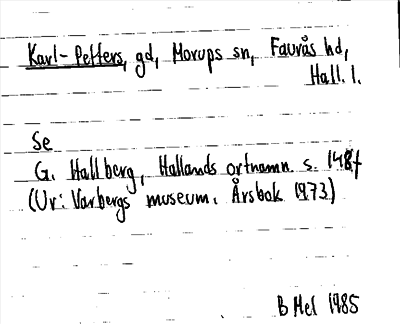 Karl-Petters, gd, Morups sn, Faurås hd,
Hall. l.
Se
G. Hallberg, Hallands ortnamn. s. 148f
(Ur: Varbergs museum. Årsbok 1973)
B Mel 1985